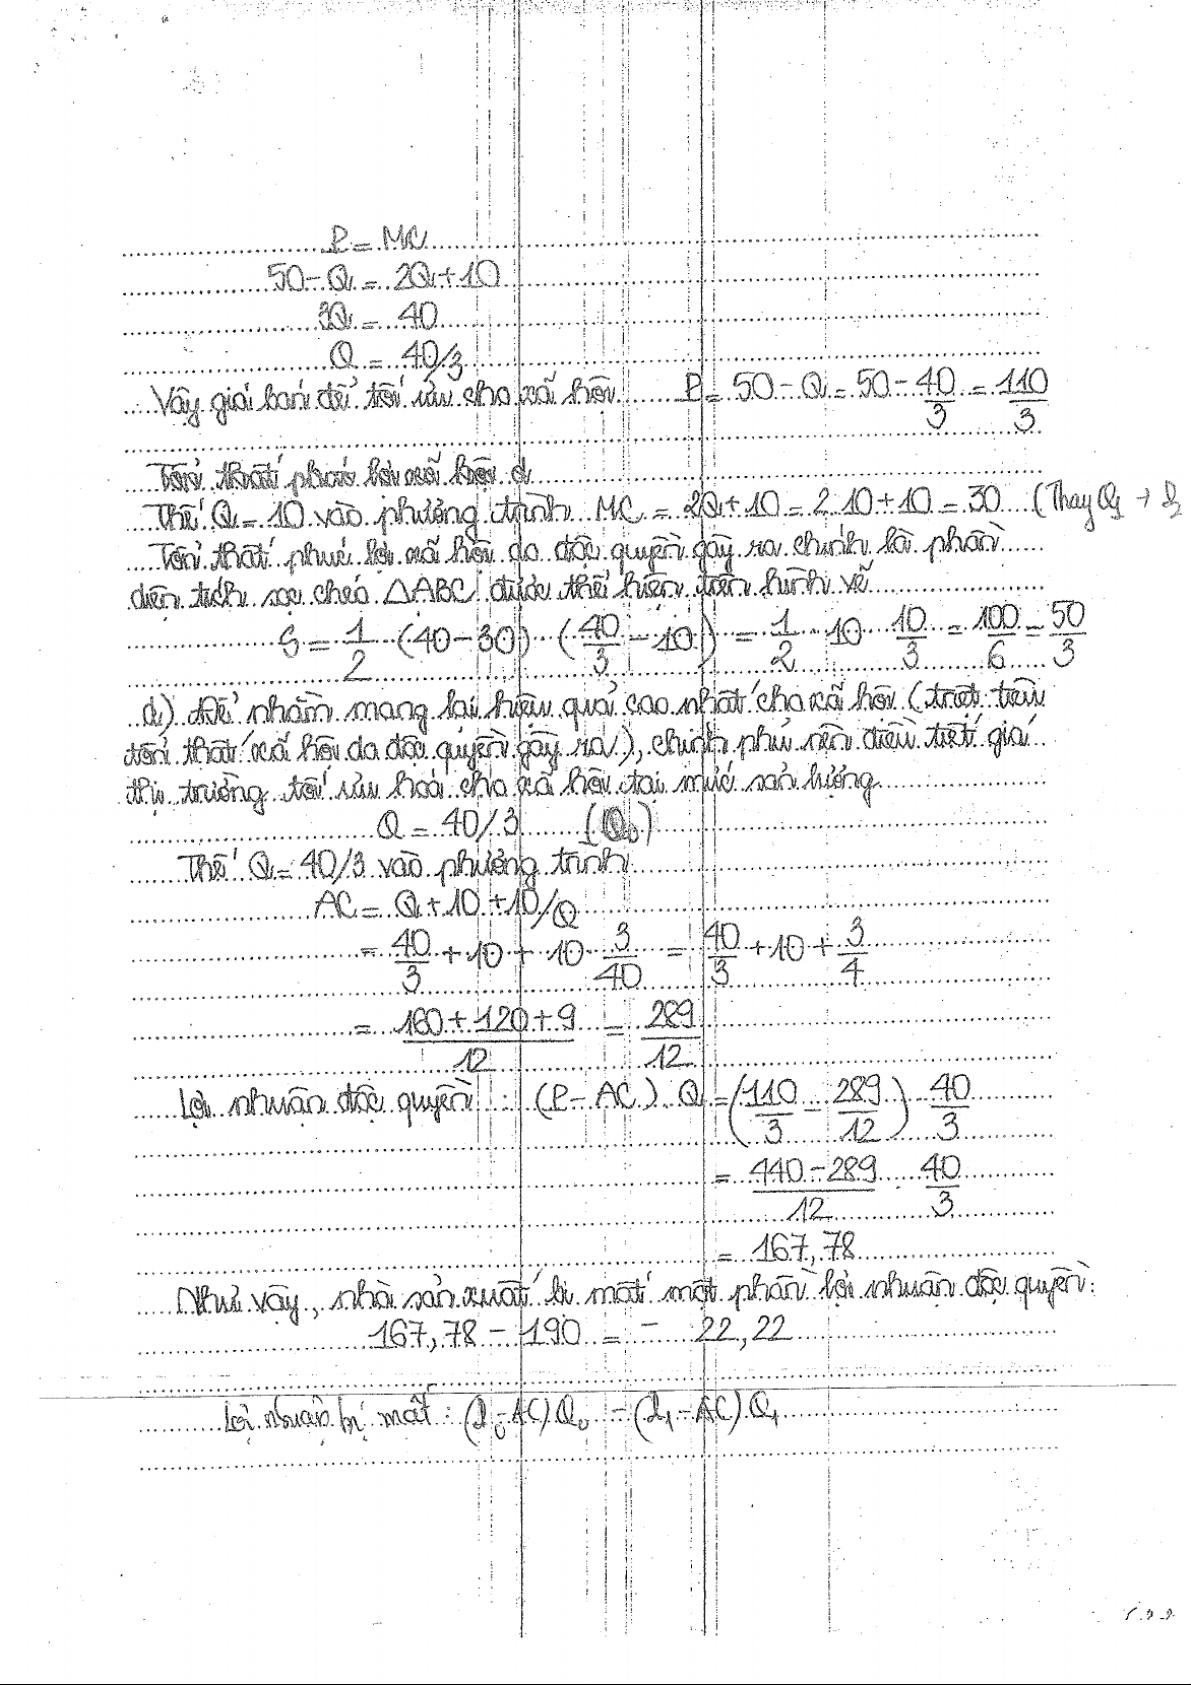 P = MC
50 - Q = 2Q + 10
3Q = 40
Q = 40/3
Vậy giá bán để tối ưu cho xã hội P = 50 - Q = 50 - 40/3 = 110/3
Tổn thất phúc lợi xã hội
Thế Q = 10 vào phương trình MC = 2Q + 10 = 2.10 + 10 = 30 (Thay Q1 →
Tổn thất phúc lợi xã hội do độc quyền gây ra chính là phần
diện tích sọc chéo △ABC được thể hiện trên hình vẽ
S = 1/2 · (40 - 30) · (40/3 - 10) = 1/2 · 10 · 10/3 = 100/6 = 50/3
d) Để nhằm mang lại hiệu quả cao nhất cho xã hội (triệt tiêu
tổn thất xã hội do độc quyền gây ra), chính phủ nên điều tiết giá
thị trường tối ưu hoá cho xã hội tại mức sản lượng
Q = 40/3 (Q0)
Thế Q = 40/3 vào phương trình
AC = Q + 10 + 10/Q
= 40/3 + 10 + 10 · 3/40 = 40/3 + 10 + 3/4
= (160 + 120 + 9)/12 = 289/12
Lợi nhuận độc quyền : (P - AC) · Q = (110/3 - 289/12) · 40/3
= (440 - 289)/12 · 40/3
= 167,78
Như vậy, nhà sản xuất bị mất một phần lợi nhuận độc quyền:
167,78 - 190 = - 22,22
Lợi nhuận bị mất : (P0 - AC) Q0 - (P1 - AC) Q1